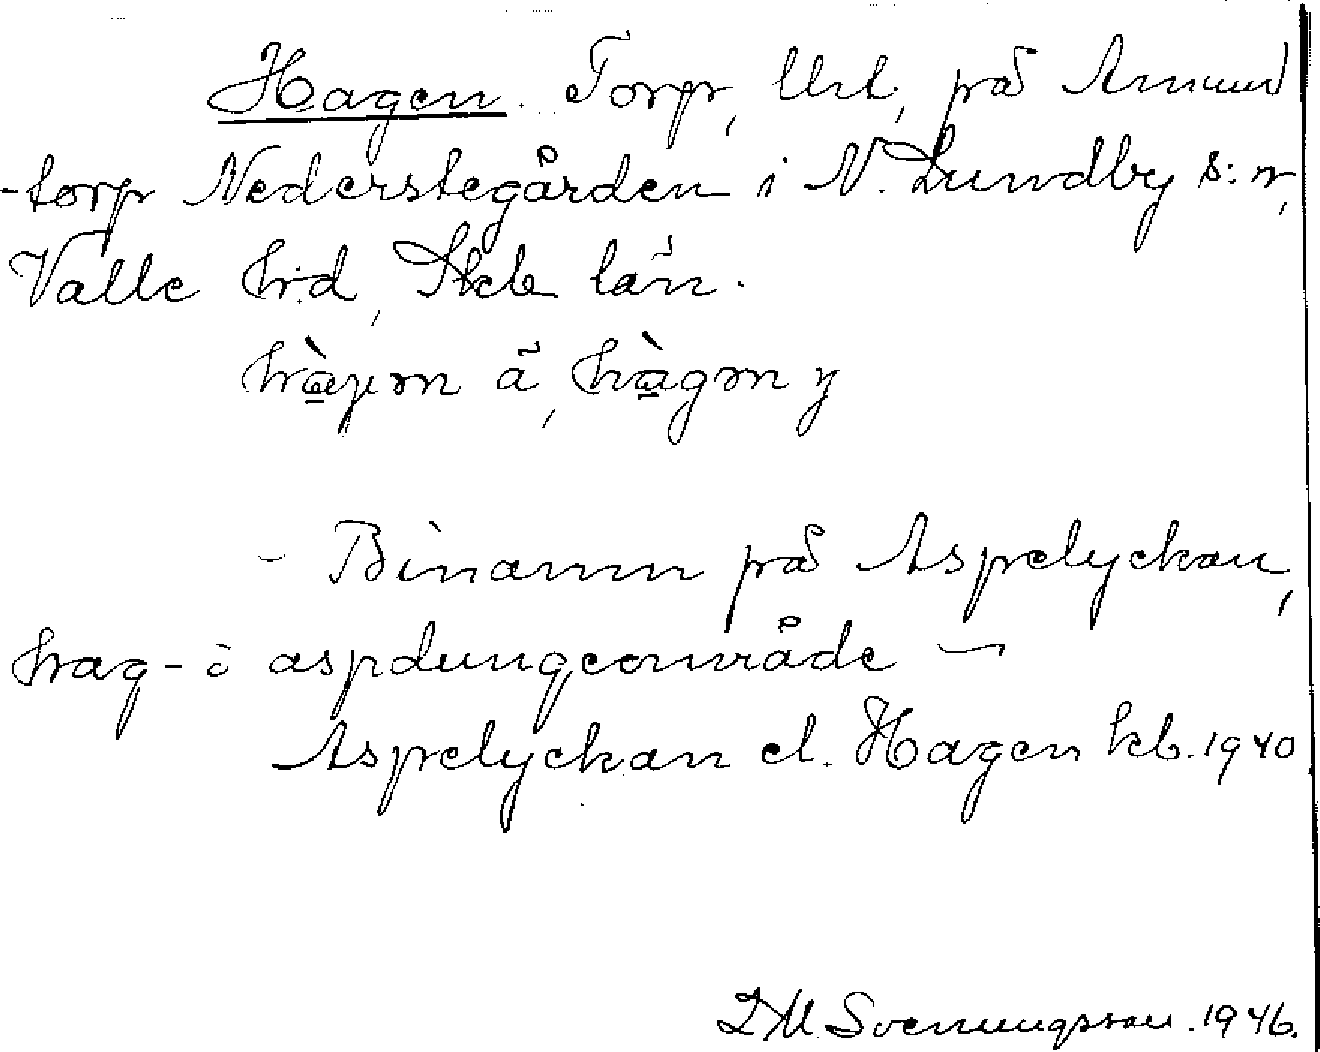 Hagen. Torp, Urt, på Amund
-torp Nederstegården i N. Lundby s:n,
Valle hd, Skb län.
hàgən ä, hàgən y
- Binamn på Aspelyckan,
hag- o aspdungeområde -
Aspelyckan el. Hagen kb. 1940
D M Svenungsson. 1946.